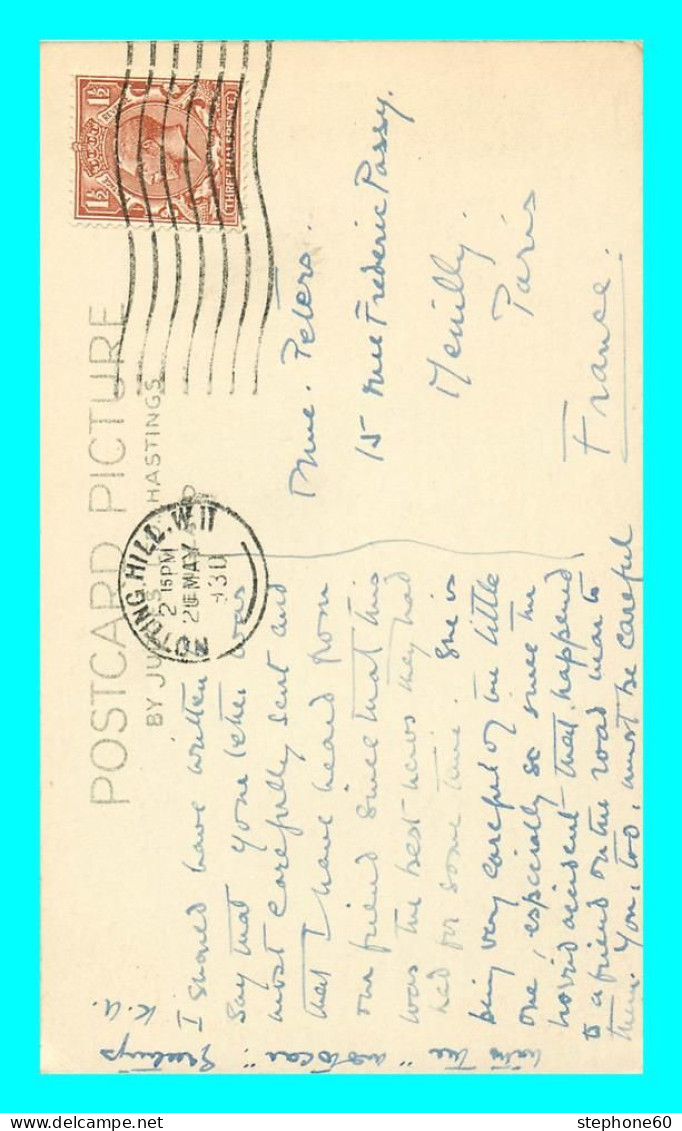 POSTCARD PICTURE
BY JU HASTINGS
1½ 1½
THREE HALFPENCE
NOTTING HILL. W.11
2 15PM
20 MAY
1930
Mme. Peters.
15 rue Frederic Passy.
Neuilly.
Paris
France.
I should have written
say that your letter was
most carefully sent and
that I have heard from
our friend since that this
was the best news they had
had for some time. She is
being very careful of the little
one, especially so since the
horrid accident that happened
to a friend on the road near to
them. You, too, must be careful
with the "autocar". Greetings
K.A.
stephone60